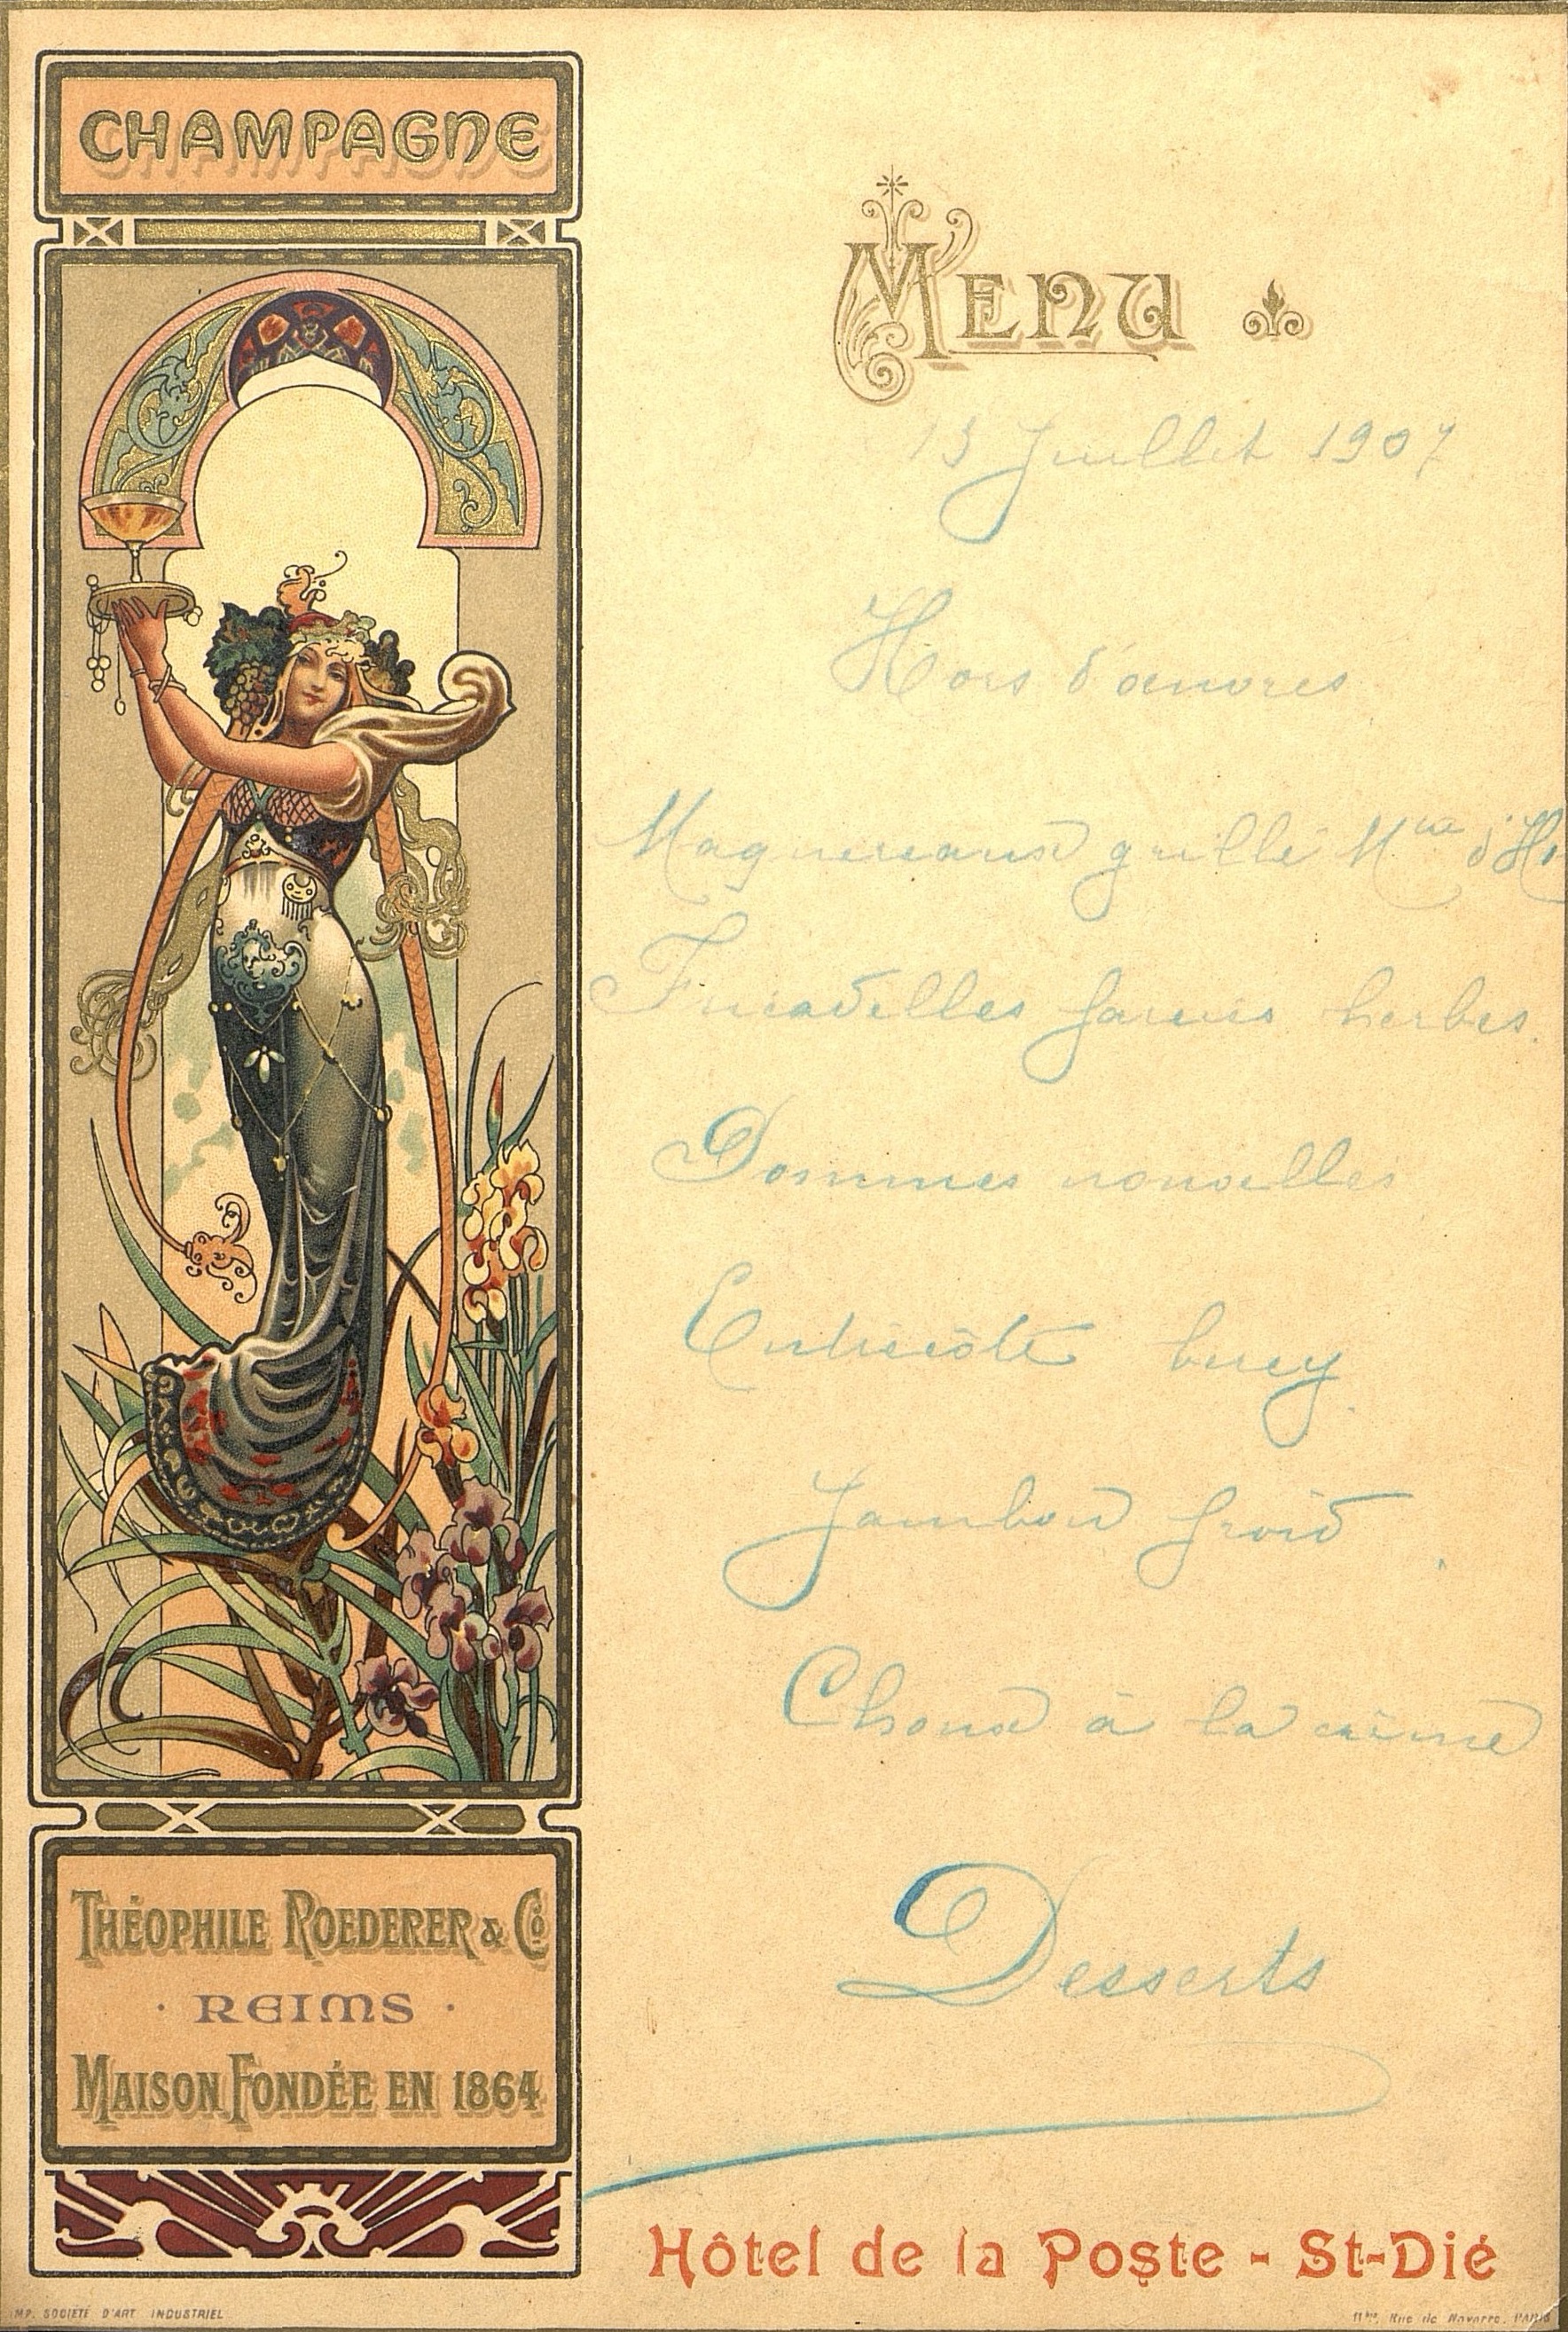 CHAMPAGNE
MENU
13 Juillet 1907
Hors d'œuvres
Maquereaux grillé Mtre d'H
Fricadelles farcies herbes.
Pommes nouvelles
Entrecôte bercy
Jambon froid
Choux à la crême
Desserts
THÉOPHILE ROEDERER & Co
· REIMS ·
MAISON FONDÉE EN 1864
Hôtel de la Poste - St-Dié
IMP. SOCIÉTÉ D'ART INDUSTRIEL
11bis, Rue de Navarre. PARIS